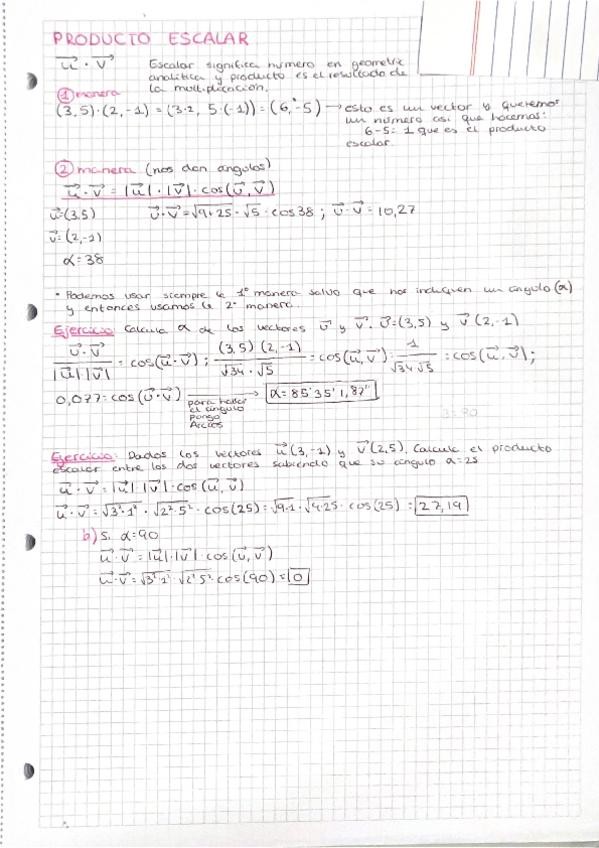 PRODUCTO ESCALAR
u⃗ · v⃗ Escalar significa numero en geometria
analitica y producto es el resultado de
la multiplicación.
① manera
(3,5)·(2,-1) = (3·2, 5·(-1)) = (6,-5) → esto es un vector y queremos
un numero asi que hacemos:
6-5= 1 que es el producto
escalar.
② manera (nos dan angulos)
u⃗·v⃗ = |u⃗|·|v⃗|·cos(u⃗,v⃗)
u⃗=(3,5) u⃗·v⃗=√9+25·√5·cos38; u⃗·v⃗=10,27
v⃗=(2,-1)
α=38
· Podemos usar siempre la 1º manera salvo que nos indiquen un angulo (α)
y entonces usamos la 2º manera.
Ejercicio: Calcula α de los vectores u⃗ y v⃗. u⃗=(3,5) y v⃗(2,-1)
u⃗·v⃗ / |u⃗|·|v⃗| = cos(u⃗·v⃗); (3,5)(2,-1) / √34·√5 = cos(u⃗,v⃗); 1 / √34√5 = cos(u⃗,v⃗);
0,077= cos(u⃗·v⃗) → α=85°35'1,87''
para hallar
el angulo
pongo
Arccos
Ejercicio: Dados los vectores u⃗(3,-1) y v⃗(2,5). Calcule el producto
escalar entre los dos vectores sabiendo que su angulo α=25
u⃗·v⃗=|u⃗|·|v⃗|·cos(u⃗,v⃗)
u⃗·v⃗=√3²·1²·√2²·5²·cos(25)=√9·1·√4·25·cos(25)=27,19
b) Si α=90
u⃗·v⃗=|u⃗|·|v⃗|·cos(u⃗,v⃗)
u⃗·v⃗=√3²·1²·√2²5²·cos(90)=0